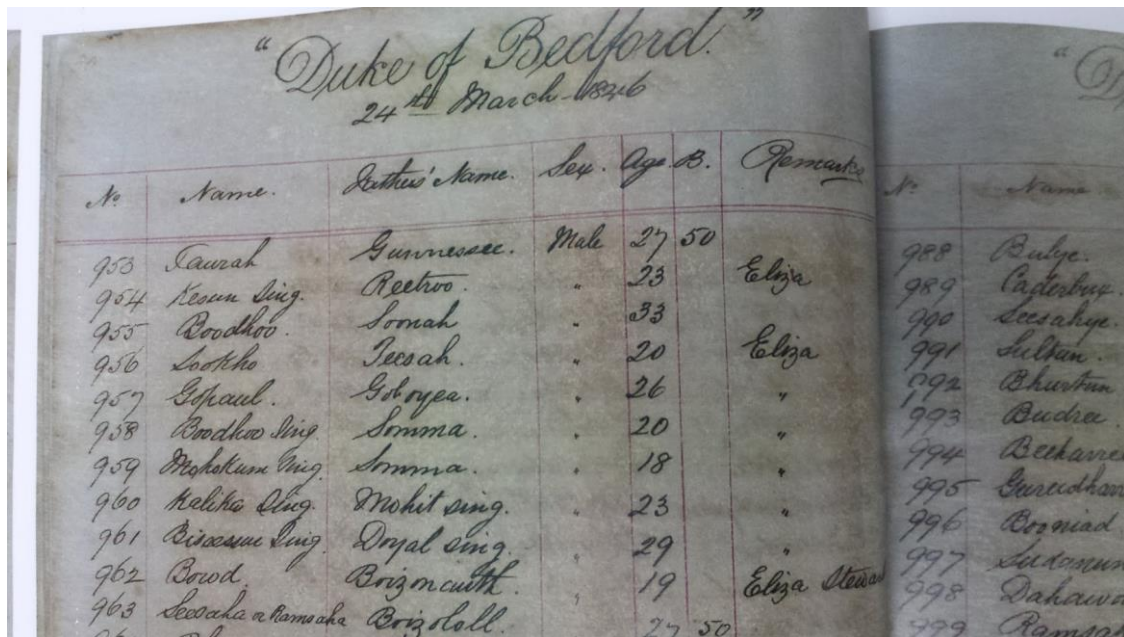 "Duke of Bedford."
24th March 1846
No. Name. Fathers' Name. Sex. Age. B. Remarks
953 Taurah Gunnessee. Male 27 50
954 Kesun Sing. Reetroo. " 23 Eliza
955 Boodhoo. Soonah " 33
956 Sookho Teesah. " 20 Eliza
957 Gopaul. Goboyea. " 26 "
958 Boodhoo Sing. Somma. " 20 "
959 Mohokum Sing Somma. " 18 "
960 Kalika Sing. Mohit sing. " 23 "
961 Sing. Doyal sing. " 29 "
962 Bowd. " 19 Eliza
963 Seesaha or Ramsaha Boizololl. 27 50
No. Name
988 Bulye.
989 Caderbux.
990 Seesahye.
991 Sultun.
992 Bhurtun
993 Budree
994
995
996 Booniad
997
998
999